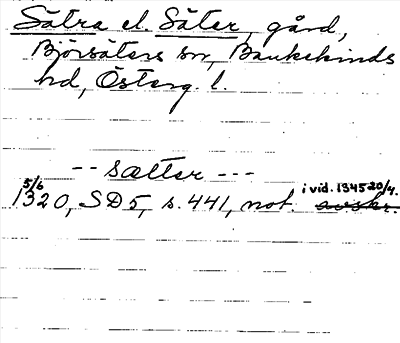 Sätra el. Säter, gård,
Björsäters sn, Bankekinds
hd, Österg. l.
-- sætter ---
1320, 5/6 SD 5, s. 441, not. i vid. 1345 20/4. avskr.